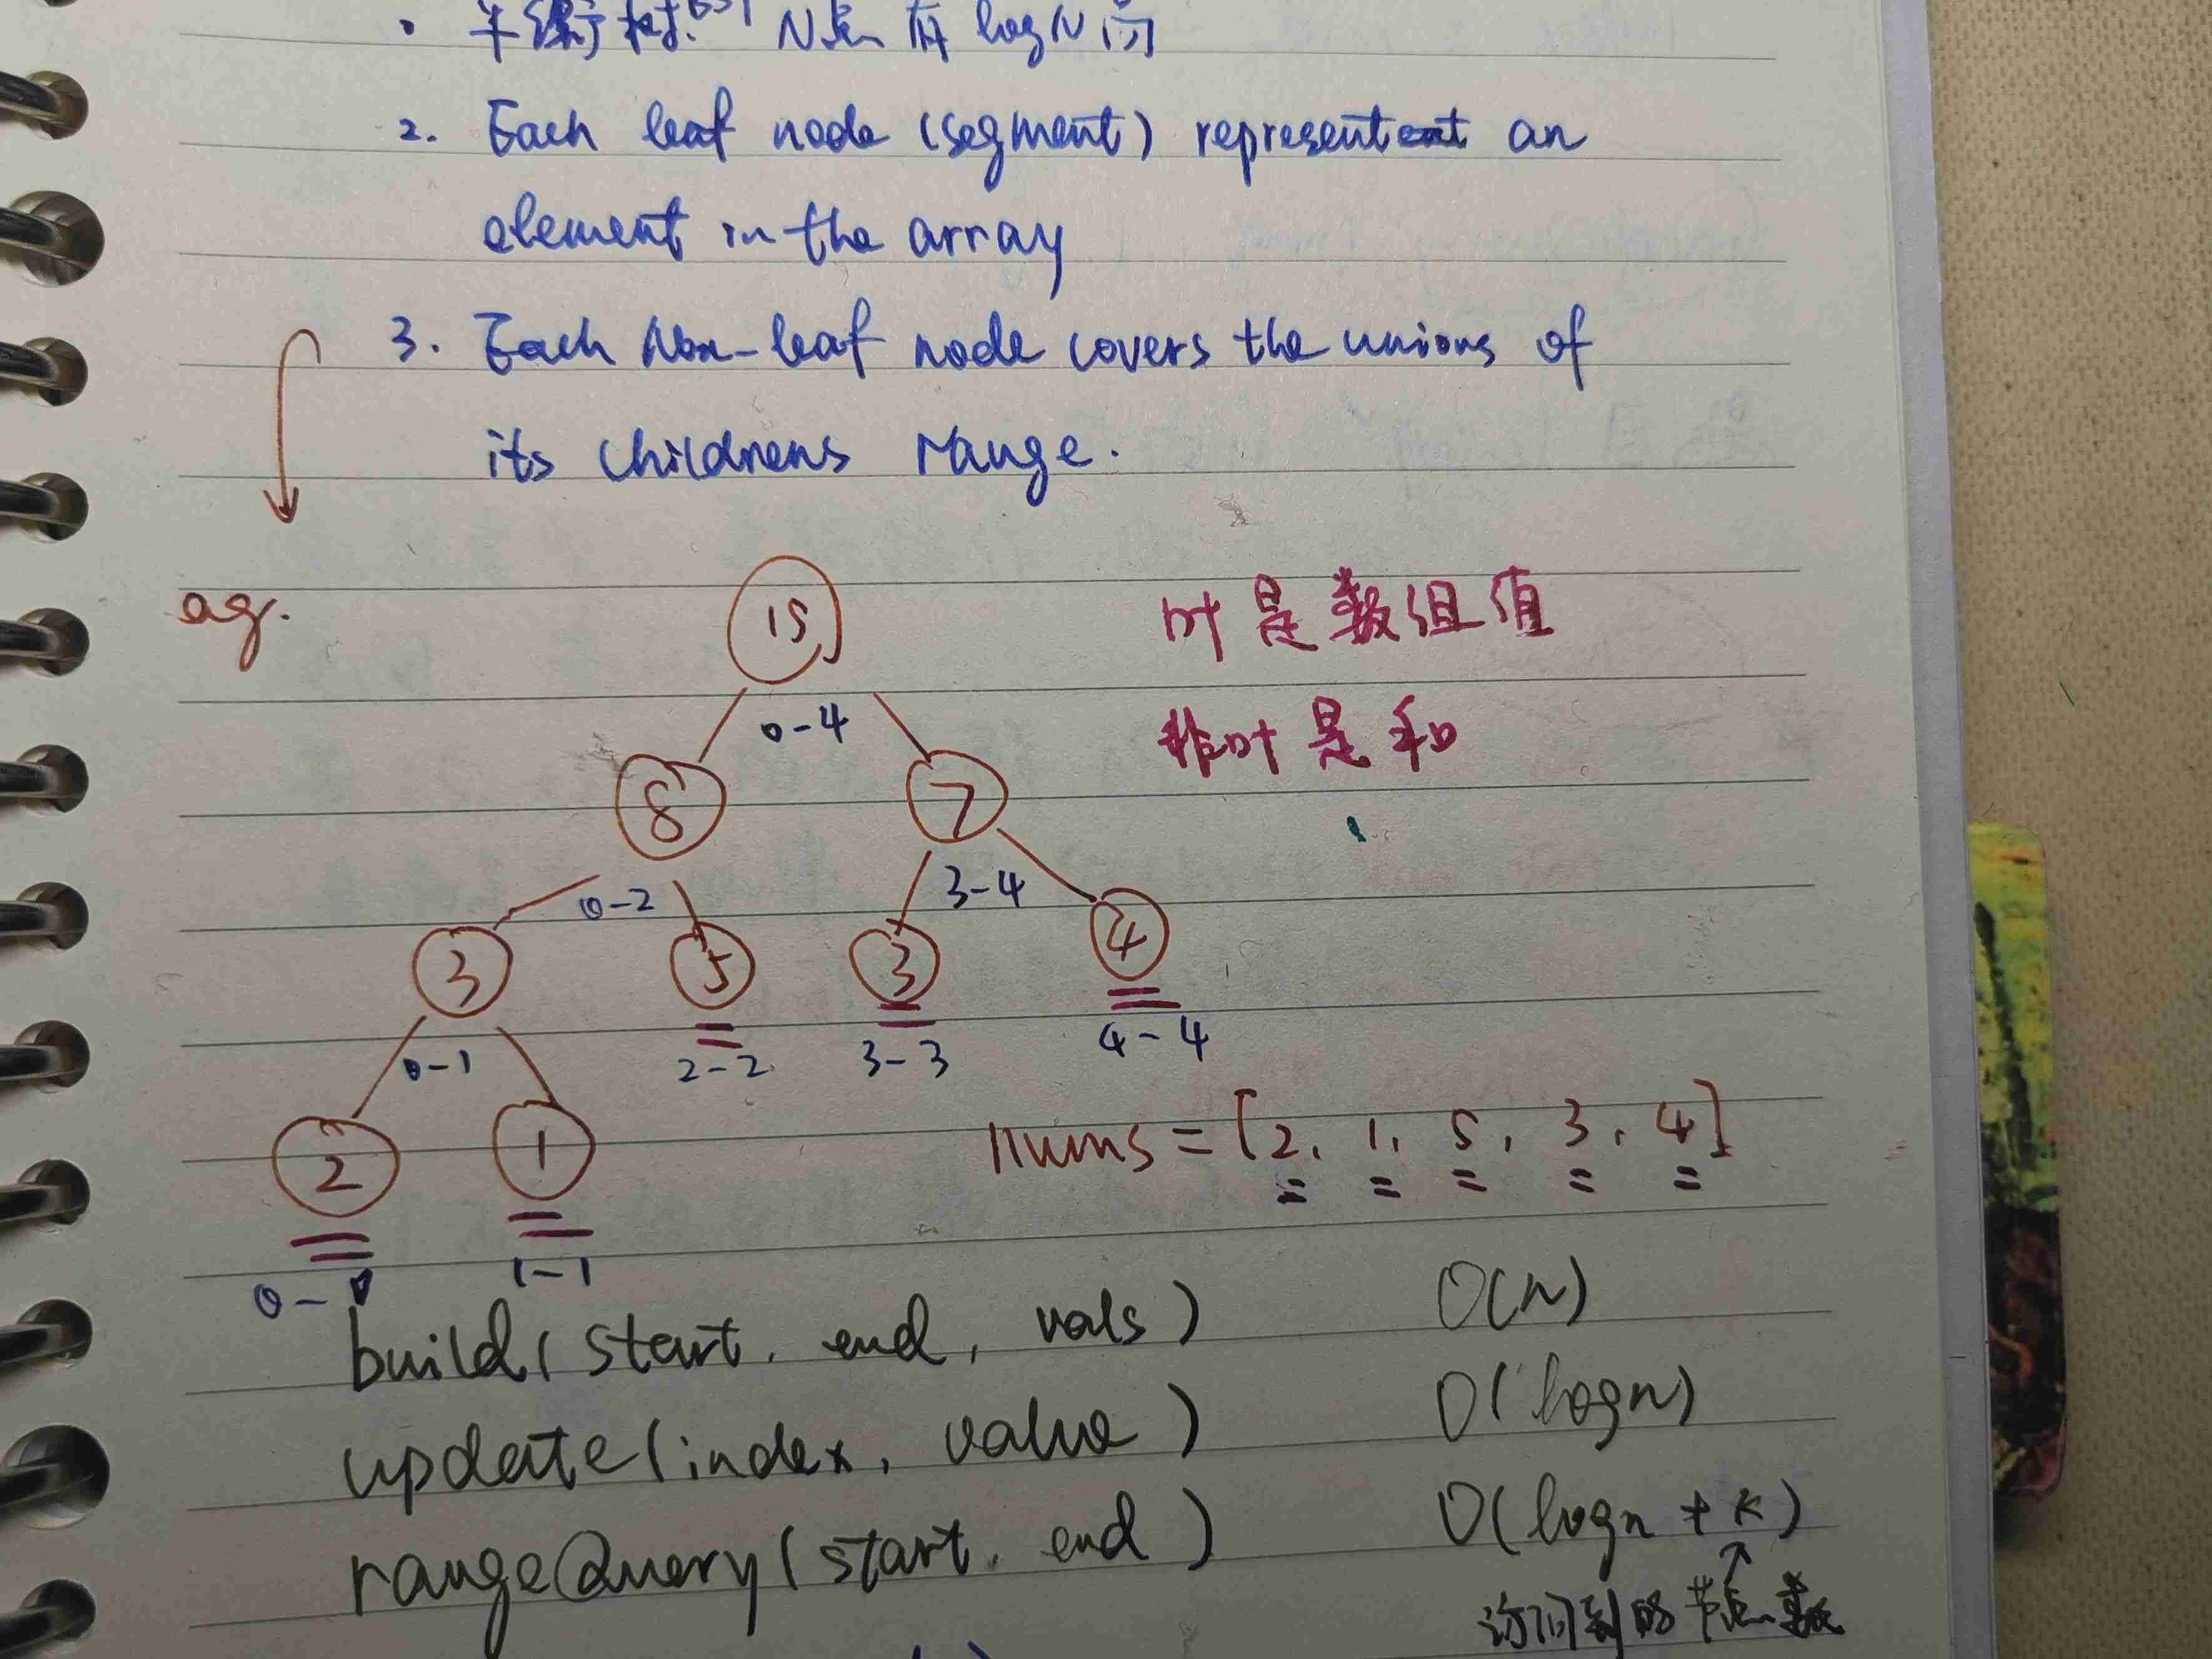 平衡树 BST N点 有 logN 高
2. Each leaf node (segment) represent an
element in the array
3. Each Non-leaf node covers the unions of
its childrens range.
eg.
15
叶是数组值
0-4
非叶是和
8
7
0-2
3-4
3
5
3
4
0-1
2-2
3-3
4-4
2
1
nums = [2, 1, 5, 3, 4]
0-0
1-1
build( start, end, vals ) O(n)
update(index, value ) O(logn)
rangeQuery( start, end ) O(logn + k)
访问到的节点数